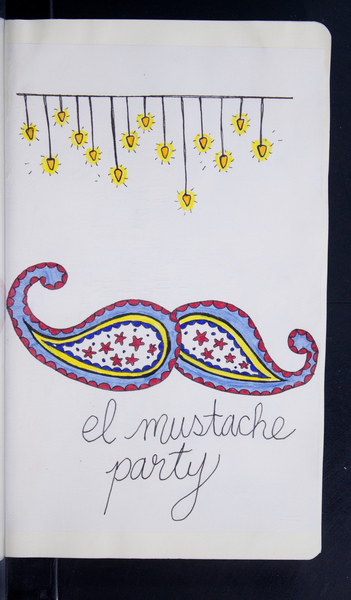 el mustache
party